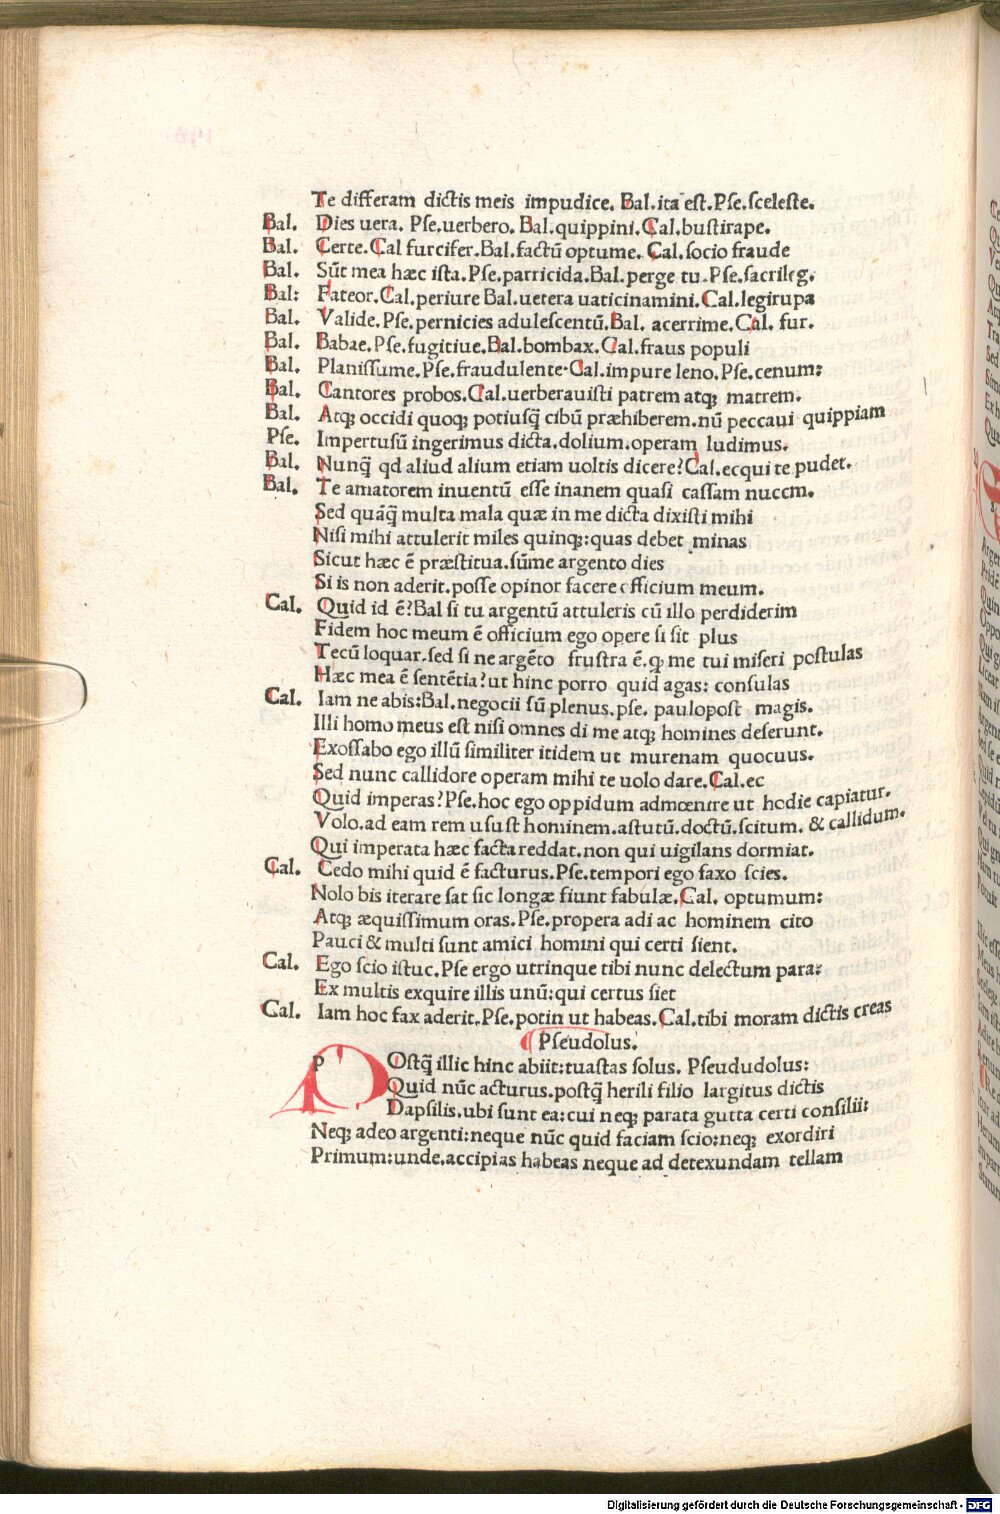 Te differam dictis meis impudice. Bal.ita est.Pſe.ſceleſte.
Bal. Dies uera. Pſe.uerbero. Bal.quippini.Cal.buſtirape.
Bal. Certe.Cal furcifer.Bal.factū optume. Cal.ſocio fraude
Bal. Sūt mea hæc iſta.Pſe.parricida.Bal.perge tu.Pſe.ſacrileg.
Bal: Fateor.Cal.periure Bal.uetera uaticinamini.Cal.legirupa
Bal. Valide.Pſe.pernicies aduleſcentū.Bal. acerrime.Cal. fur.
Bal. Babae.Pſe.fugitiue.Bal.bombax.Cal.fraus populi
Bal. Planiſſume.Pſe.fraudulente.Cal.impure leno.Pſe.cenum:
Bal. Cantores probos.Cal.uerberauiſti patrem atq; matrem.
Bal. Atq; occidi quoq; potiuſq̄ cibū præhiberem.nū peccaui quippiam
Pſe. Impertuſū ingerimus dicta.dolium.operam ludimus.
Bal. Nunq̄ qd aliud alium etiam uoltis dicere?Cal.ecqui te pudet.
Bal. Te amatorem inuentū eſſe inanem quaſi caſſam nuccm.
Sed quāq̄ multa mala quæ in me dicta dixiſti mihi
Niſi mihi attulerit miles quinq;:quas debet minas
Sicut hæc ē præſtitua.ſūme argento dies
Si is non aderit.poſſe opinor facere officium meum.
Cal. Quid id ē?Bal ſi tu argentū attuleris cū illo perdiderim
Fidem hoc meum ē officium ego opere ſi ſit plus
Tecū loquar.ſed ſi ne argēto fruſtra ē.q̨ me tui miſeri poſtulas
Hæc mea ē ſentētia?ut hinc porro quid agas: conſulas
Cal. Iam ne abis:Bal.negocii ſū plenus.pſe. paulopoſt magis.
Illi homo meus eſt niſi omnes di me atq; homines deſerunt.
Exoſſabo ego illū ſimiliter itidem ut murenam quocuus.
Sed nunc callidore operam mihi te uolo dare.Cal.ec
Quid imperas?Pſe.hoc ego oppidum admœnire ut hodie capiatur.
Volo.ad eam rem uſuſt hominem.aſtutū.doctū.ſcitum. & callidum.
Qui imperata hæc facta reddat.non qui uigilans dormiat.
Cal. Cedo mihi quid ē facturus.Pſe.tempori ego faxo ſcies.
Nolo bis iterare ſat ſic longæ fiunt fabulæ.Cal. optumum:
Atq; æquiſſimum oras.Pſe.propera adi ac hominem cito
Pauci & multi ſunt amici homini qui certi ſient.
Cal. Ego ſcio iſtuc.Pſe ergo utrinque tibi nunc delectum para:
Ex multis exquire illis unū:qui certus ſiet
Cal. Iam hoc fax aderit.Pſe.potin ut habeas.Cal.tibi moram dictis creas
Pſeudolus.
POſtq̄ illic hinc abiit:tuaſtas ſolus. Pſeududolus:
Quid nūc acturus.poſtq̄ herili filio largitus dictis
Dapſilis.ubi ſunt ea:cui neq; parata gutta certi conſilii:
Neq; adeo argenti:neque nūc quid faciam ſcio:neq; exordiri
Primum:unde.accipias habeas neque ad detexundam tellam
Digitalisierung gefördert durch die Deutsche Forschungsgemeinschaft - DFG